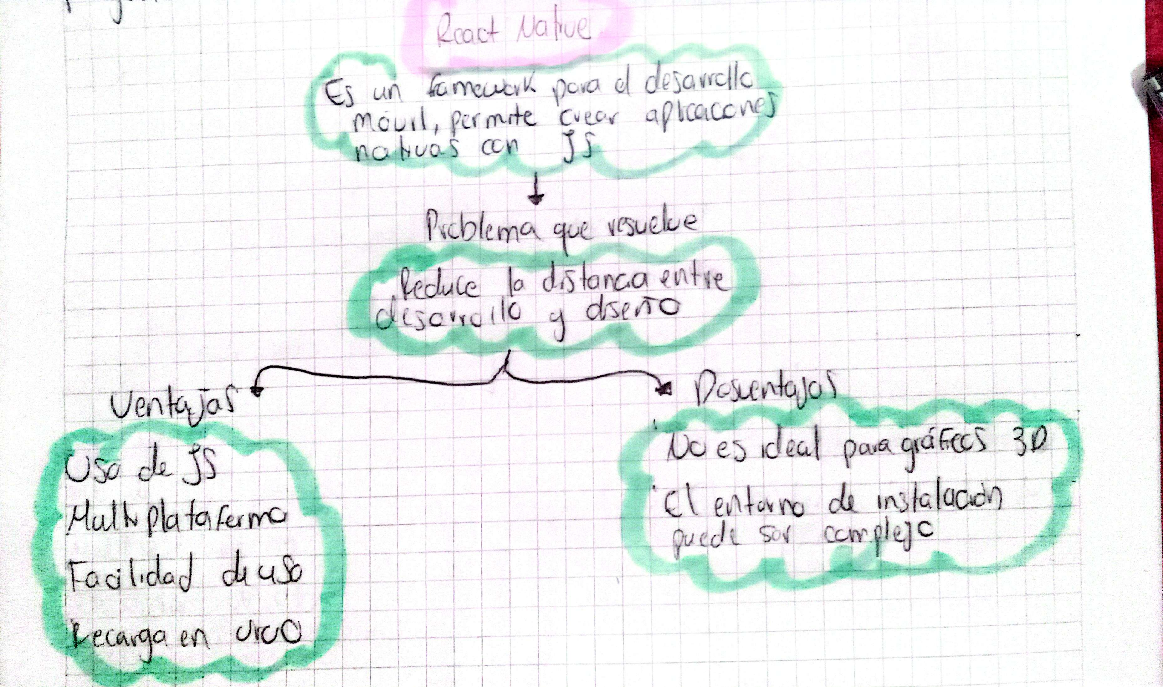 React Native
Es un famework para el desarrollo
móvil, permite crear aplicaciones
nativas con JS
Problema que resuelve
Reduce la distancia entre
desarrollo y diseño
Ventajas
Desventajas
Uso de JS
Multiplataforma
Facilidad de uso
Recarga en vivo
No es ideal para gráficos 3D
El entorno de instalación
puede ser complejo